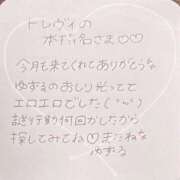 トレヴィの
ボガ名さま♡♡
今月も来てくれてありがとうな
ゆずるのおしり光ってて
エロエロでした(''ω'')
謎行動何回かしたから
探してみてね♡またねな
ゆずる